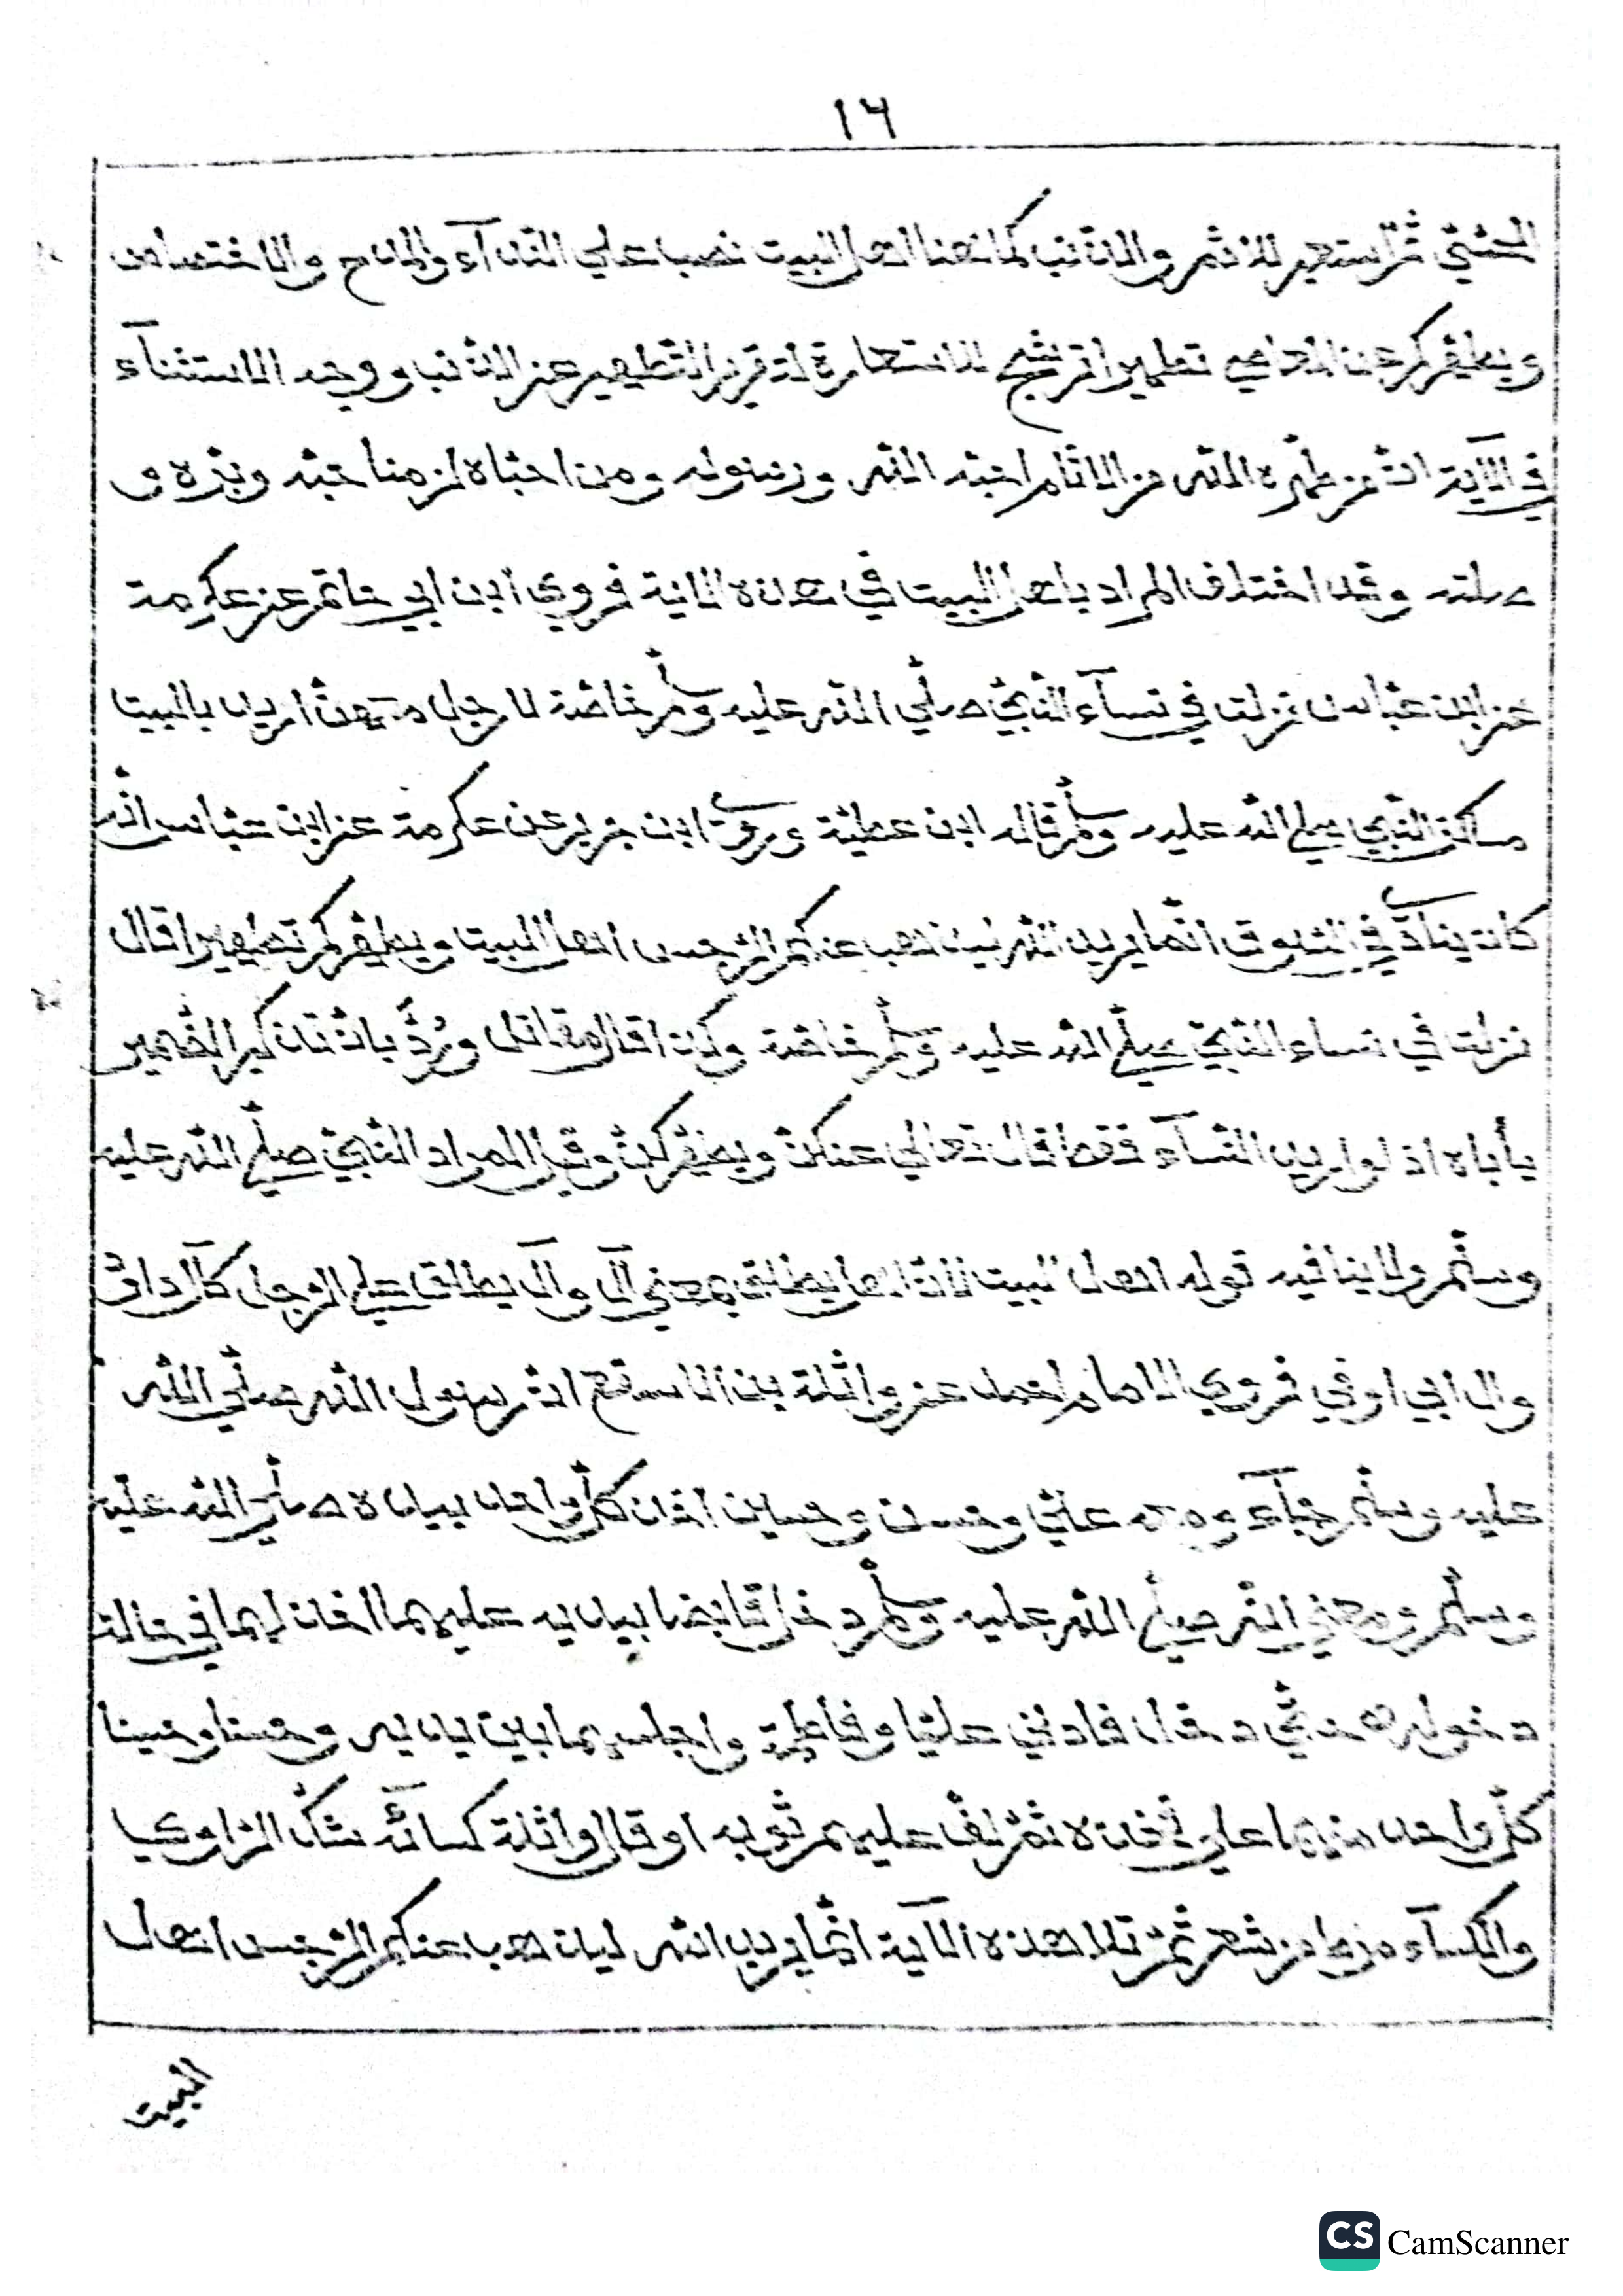 ١٦
الحسّيّ ثمّ استعير للاثم والذنب كما هنا اهل البيت نصب علي الندآء والمدح والاختصاص
ويطهّركم عن المعاصي تطهيرا ترشيح للاستعارة لتقرير التطهير عن الذنب ووجه الاستثنآء
في الآية انّ من طهّره الله من الاثام احبّه الله ورسوله ومن احبّاه لزمنا حبّه وبرّه و
صلته وقد اختلف المراد باهل البيت في هذه الاية فروي ابن ابي حاتم عن عكرمة
عن ابن عبّاس نزلت في نسآء النّبيّ صلّي الله عليه وسلّم خاصّة لا رجل معهنّ اريد بالبيت
مساكن النّبي صلي الله عليه وسلّم قاله ابن عطيّة وروي ابن جرير عن عكرمة عن ابن عبّاس انّه
كان ينادي في السّوق انّما يريد الله ليذهب عنكم الرّجس اهل البيت ويطهّركم تطهيرا قال
نزلت في نساء النّبيّ صلّي الله عليه وسلّم خاصّة وكذا قال مقاتل ورُدَّ بانّ تذكير الضّمير
يأباه اذ لو اريد النّسآء فقط لقال تعالي عنكنّ ويطهّركنّ وقيل المراد النّبيّ صلّي الله عليه
وسلّم ولا ينافيه قوله اهل البيت لانّ اهل يطلق بمعني آل وآل يطلق علي الرجل كآل داود
وال ابي اوفي فروي الامام احمد عن واثلة بن الاسقع انّ رسول الله صلّي الله
عليه وسلّم جآء ومعه عليّ وحسن وحسين اخذ كلّ واحد بيده صلّي الله عليه
وسلّم ومعني انّه صلّي الله عليه وسلّم دخل قابضا بيديه عليهما اخذ ايهما في حالة
دخولهم حتّي دخل فادني عليّا وفاطمة واجلسهما بين يديه وحسنا وحسينا
كلّ واحد منهما علي فخذه ثمّ لفّ عليهم ثوبه او قال واثلة كسائه شكّ الراوي
والكسآء مرط من شعر ثمّ تلا هذه الآية انّما يريد الله ليذهب عنكم الرّجس اهل
البيت
CS CamScanner